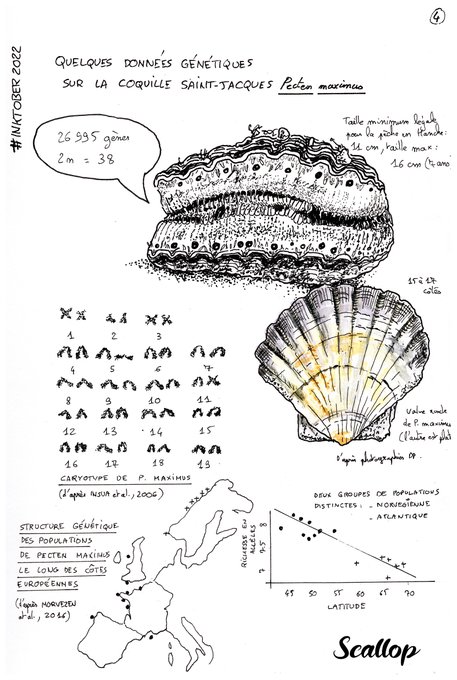 4
#INKTOBER 2022
QUELQUES DONNÉES GÉNÉTIQUES
SUR LA COQUILLE SAINT-JACQUES Pecten maximus
26 995 gènes
2n = 38
Taille minimum légale
pour la pêche en Manche:
11 cm, taille max:
16 cm (7 ans
15 à 17
côtes
Valve
de P. maximus
(l'autre est plate
D'après photographies DP.
1 2 3
4 5 6 7
8 9 10 11
12 13 14 15
16 17 18 19
CARYOTYPE DE P. MAXIMUS
(d'après INSUA et al., 2006)
STRUCTURE GÉNÉTIQUE
DES POPULATIONS
DE PECTEN MAXIMUS
LE LONG DES CÔTES
EUROPÉENNES
(d'après MORVEZEN
et al., 2016)
DEUX GROUPES DE POPULATIONS
DISTINCTES: - NORVÉGIENNE
- ATLANTIQUE
RICHESSE EN
ALLÈLES
8
7.5
7
45 50 55 60 65 70
LATITUDE
Scallop